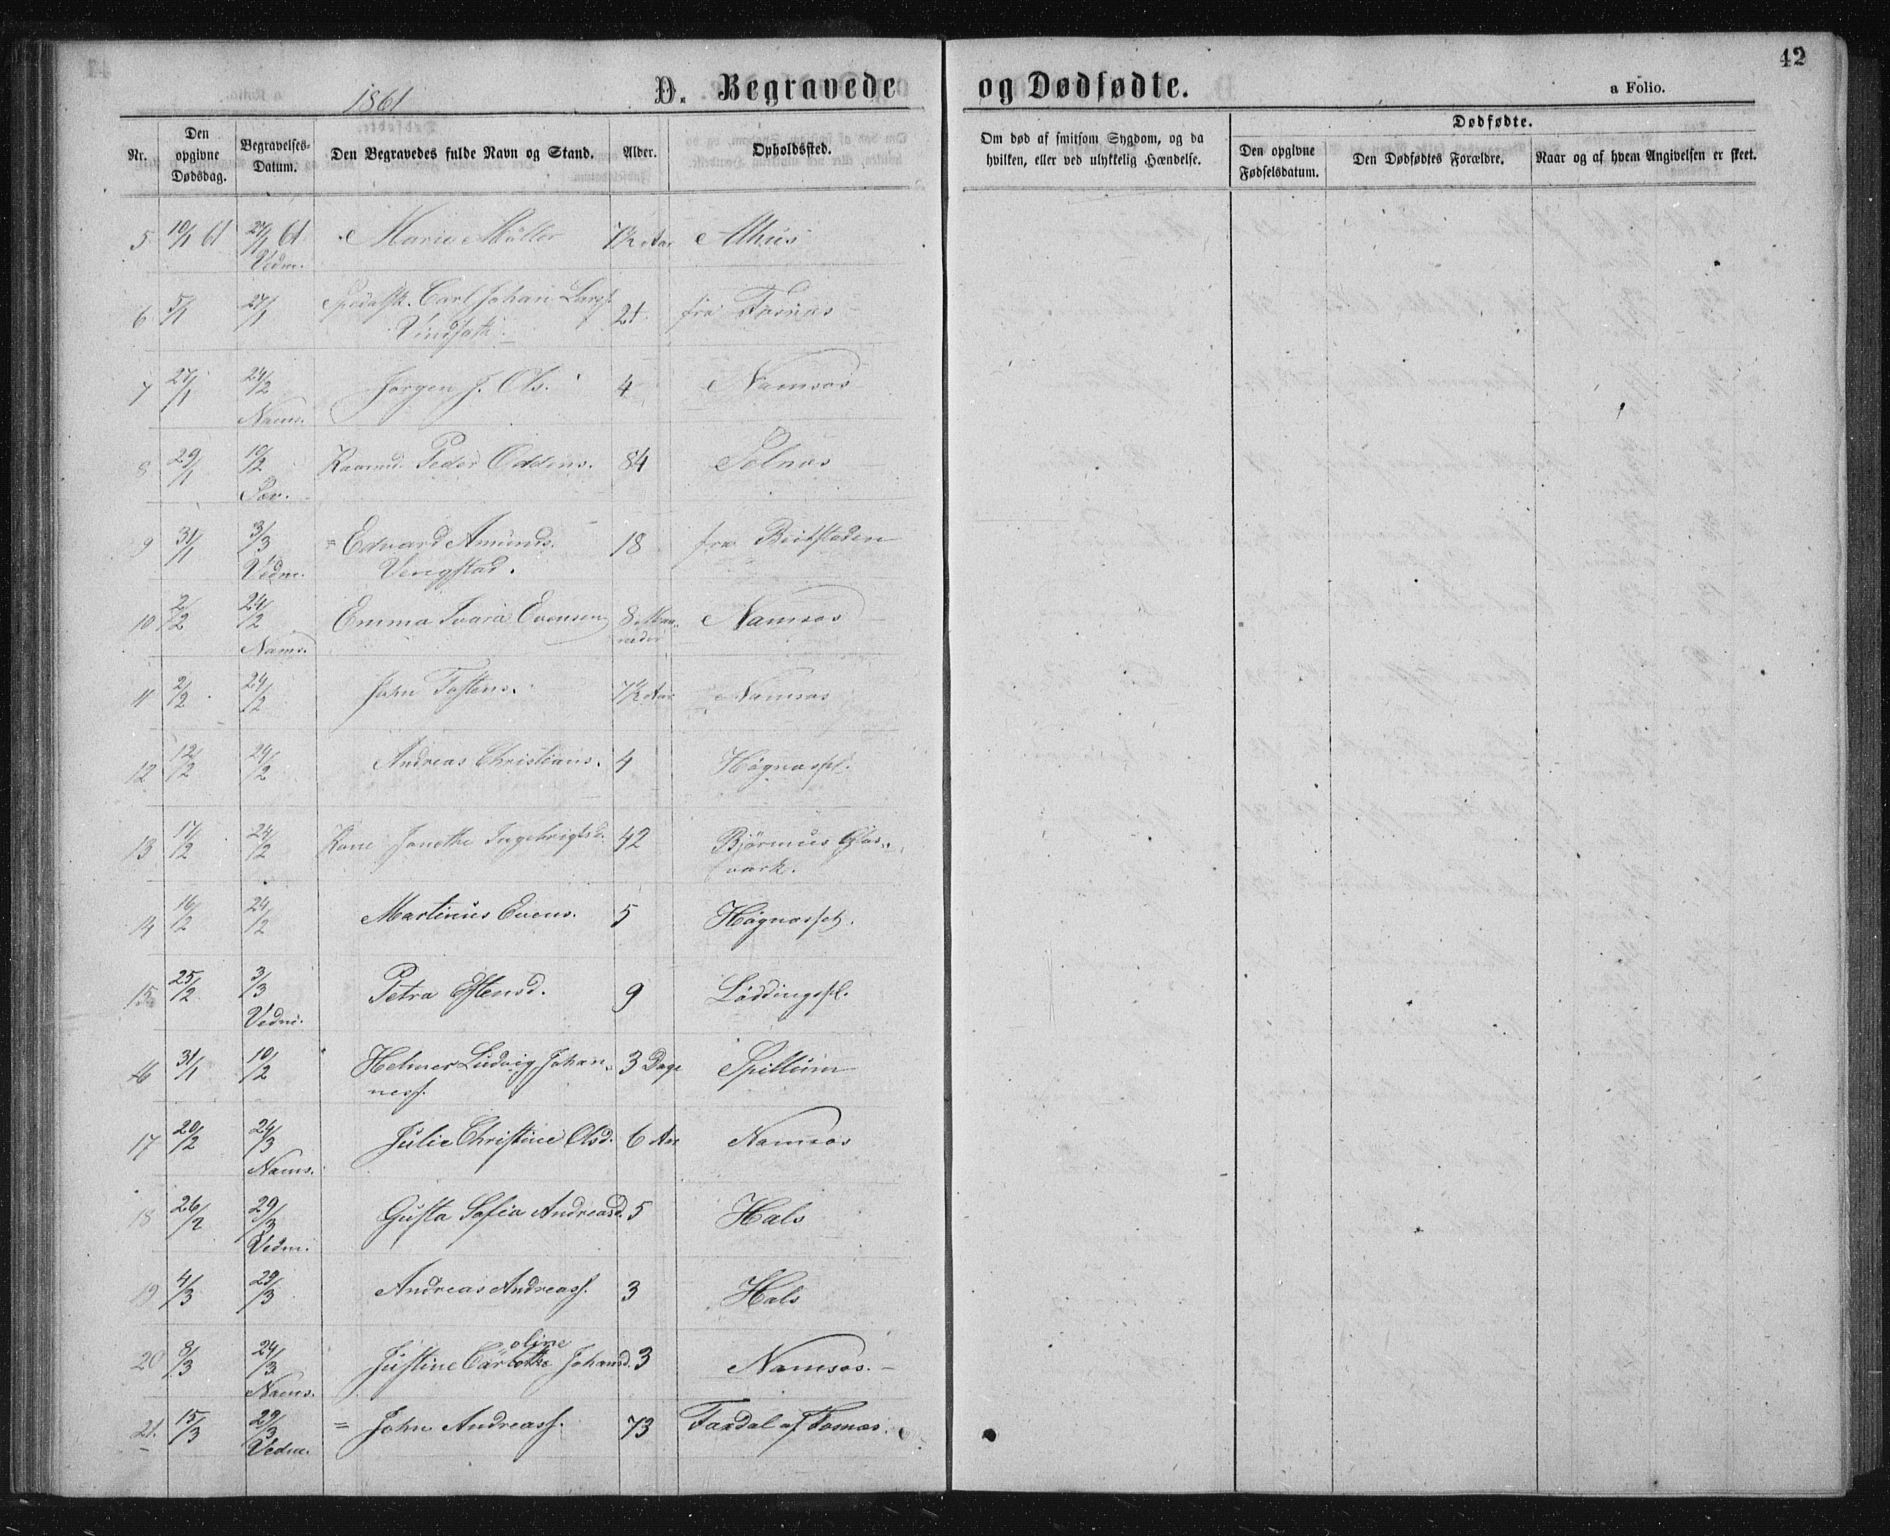 42
1861
D. Begravede og Dødfødte.
a Folio.
Nr.
Den opgivne Dødsdag.
Begravelses-Datum.
Den Begravedes fulde Navn og Stand.
Alder.
Opholdssted.
Om død af smitsom Sygdom, og da hvilken, eller ved ulykkelig Hændelse.
Dødfødte.
Den opgivne Fødselsdatum.
Den Dødfødtes Forældre.
Naar og af hvem Angivelsen er skeet.
5 10/1 61 27/1 61 Marie Møller 7½ Aar Ahus
Vedm.
6 5/1 27/1 Spedalsk. Carl Johan Larsf. 21 fra Fosnæs
7 27/1 24/2 Jørgen J. Ols. 4 Namsos
Nams.
8 29/1 10/2 Kaarmd. Peder Oddens. 84 Solnæs
Sæv.
9 31/1 3/3 = Edvard Amunds. 18 fra Beitstaden
Vedm. Vengstad.
10 2/2 24/2 Emma Ivara Evensen 8 Maaneder Namsos
Nams.
11 2/2 24/2 John Tostens. 7½ Aar Namsos
12 12/2 24/2 Andreas Christians. 4 Høgnæspl.
13 17/2 24/2 Kone Jonetha Ingebrigtsd. 42 Bjørums
værk.
14 16/2 24/2 Martinus Evens. 5 Høgnæsset.
15 25/2 3/3 Petra Estensd. 9 Løddingspl.
Vedm.
16 31/1 10/2 Helmer Ludvig Johan- 3 Dage Spillum
nesf.
17 20/2 24/3 Julie Christine Olsd. 6 Aar Namsos
Nams.
18 26/2 29/3 Gusta Sofia Andreasd. 5 Hals
Vedm.
19 4/3 29/3 Andreas Andreasf. 3 Hals
oline
20 8/3 24/3 Justine Carlotha Johansd. 3 Namsos.
Nams.
21. 15/3 29/3 = John Andreasf. 73 Faxdal af Fosnæs.
Vedm.